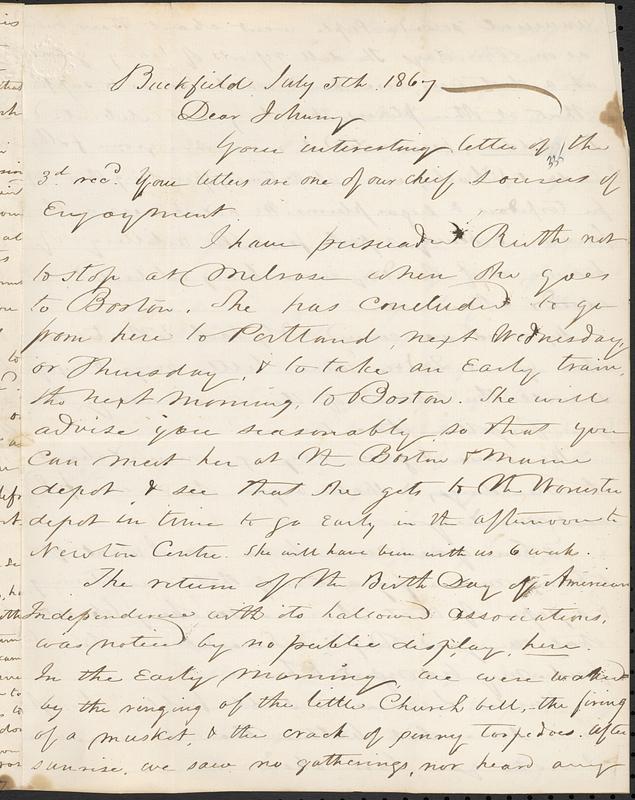 Buckfield July 5th. 1867
Dear Johnny
Your interesting letter of the
3d recd Your letters are one of our chief sources of
Enjoyment.
I have persuaded Ruth not
to stop at Melrose when she goes
to Boston. She has concluded to go
from here to Portland, next Wednesday,
or Thursday, & to take an Early train,
the next morning, to Boston. She will
advise you seasonably so that you
can meet her at the Boston & Maine
depot, & see that she gets to the Worcester
depot in time to go Early in the afternoon to
Newton Centre. She will have been with us 6 week.
The return of the Birth Day of American
Independence with its hallowed associations,
was noticed by no public display, here.
In the Early morning, we were waked
by the ringing of the little Church bell, the firing
of a musket, & the crack of penny torpedoes. After
sunrise, we saw no gatherings, nor heard any